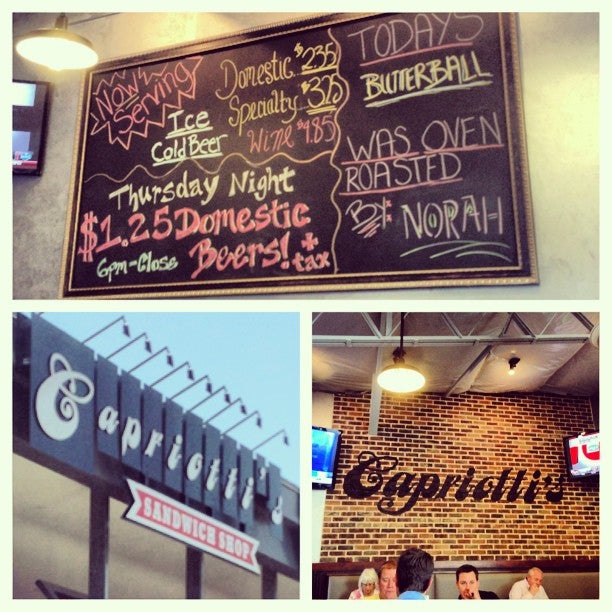 Now
Serving
Ice
Cold Beer
Domestic $2.35
Specialty $3.25
Wine $4.85
Thursday Night
$1.25 Domestic
Beers! + tax
6pm-Close
TODAYS
BUTTERBALL
WAS OVEN
ROASTED
BY: NORAH
Capriotti's
SANDWICH SHOP
Capriotti's